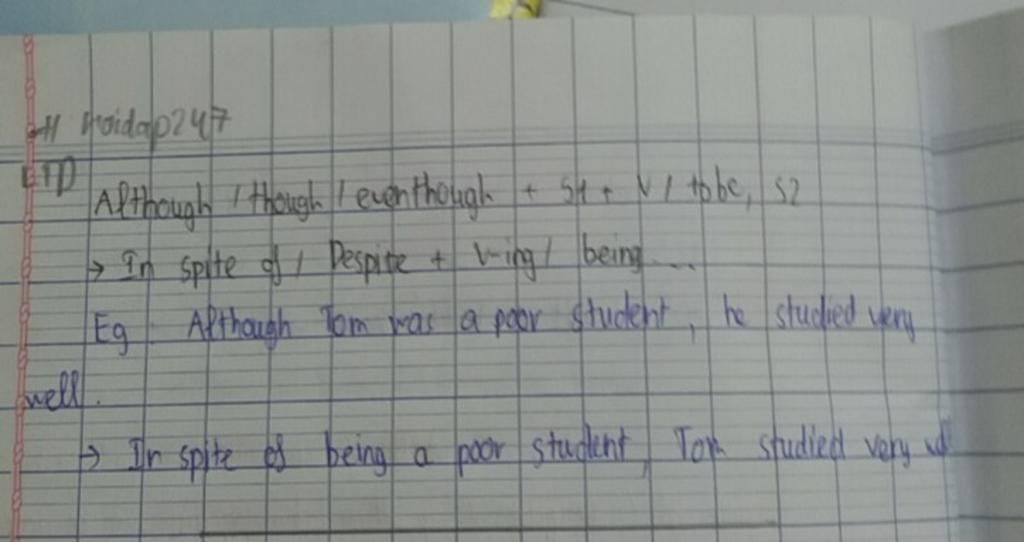 # Hoidap247
Although / though / eventhough + S1 + V / tobe, S2
→ In spite of / Despite + V-ing / being ...
Eg: Although Tom was a poor student, he studied very
well.
→ In spite of being a poor student, Tom studied very